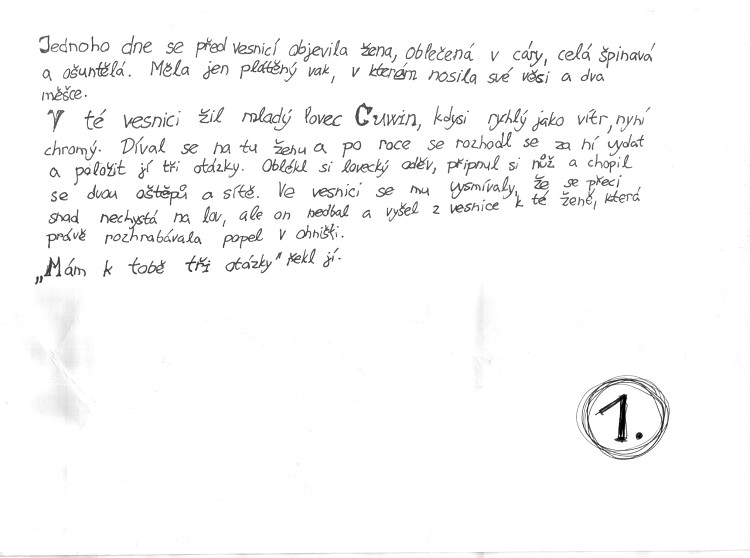 Jednoho dne se před vesnicí objevila žena, oblečená v cáry, celá špinavá
a ošuntělá. Měla jen plátěný vak, v kterém nosila své věsi a dva
měšce.
V té vesnici žil mladý lovec Cuwin, kdysi rychlý jako vítr, nyní
chromý. Díval se na tu ženu a po roce se rozhodl se za ní vydat
a položit jí tři otázky. Oblékl si lovecký oděv, připnul si nůž a chopil
se dvou oštěpů a sítě. Ve vesnici se mu vysmívaly, že se přeci
snad nechystá na lov, ale on nedbal a vyšel z vesnice k té ženě, která
právě rozhrabávala popel v ohništi.
„Mám k tobě tři otázky" řekl jí.
1.